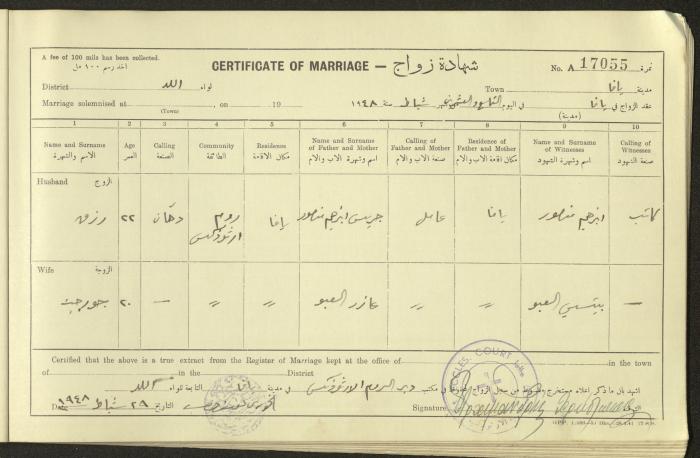 A fee of 100 mils has been collected.
اخذ رسم ١٠٠ مل
CERTIFICATE OF MARRIAGE — شهادة زواج
No. A 17055 نمرة
District لواء اللد
Town مدينة يافا
Marriage solemnised at , on 19
(Town)
عقد الزواج في يافا في اليوم التاسع والعشرين شباط سنة ١٩٤٨
(مدينة)
1 2 3 4 5 6 7 8 9 10
Name and Surname الاسم والشهرة
Age العمر
Calling الصنعة
Community الطائفة
Residence مكان الاقامة
Name and Surname of Father and Mother اسم وشهرة الاب والام
Calling of Father and Mother صنعة الاب والام
Residence of Father and Mother مكان اقامة الاب والام
Name and Surname of Witnesses اسم وشهرة الشهود
Calling of Witnesses صنعة الشهود
Husband الزوج
رزق ٢٢ دهان روم ارثوذكس يافا جريس ابرهيم منصور عامل يافا ابرهيم منصور كاتب
Wife الزوجة
جورجيت ٢٠ — " " عازر العبو " " العبو —
Certified that the above is a true extract from the Register of Marriage kept at the office of in the town
of in the District
اشهد بان ما ذكر اعلاه مستخرج من سجل الزواج في مكتب دير الروم الارثوذكس في مدينة يافا التابعة للواء اللد
Date التاريخ ٢٩ شباط ١٩٤٨
Signature
ECCLES. COURT